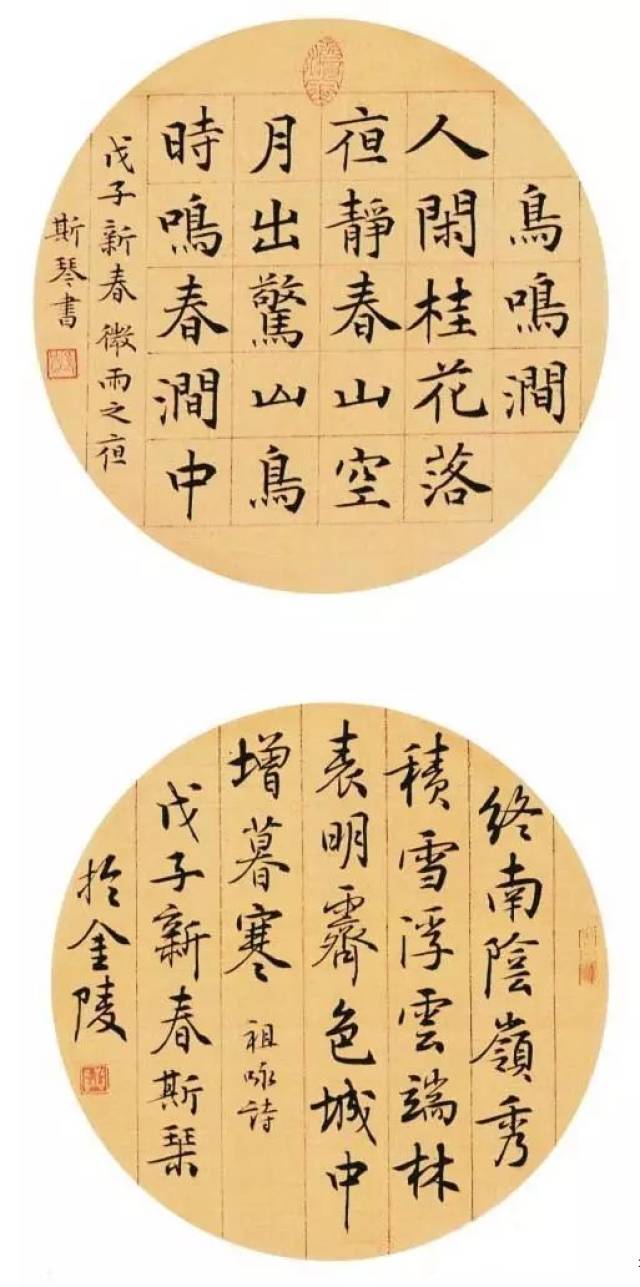 鳥鳴澗
人閑桂花落
夜靜春山空
月出驚山鳥
時鳴春澗中
戊子新春微雨之夜
斯琴書
終南陰嶺秀
積雪浮雲端林
表明霽色城中
增暮寒 祖咏詩
戊子新春斯琴
於金陵